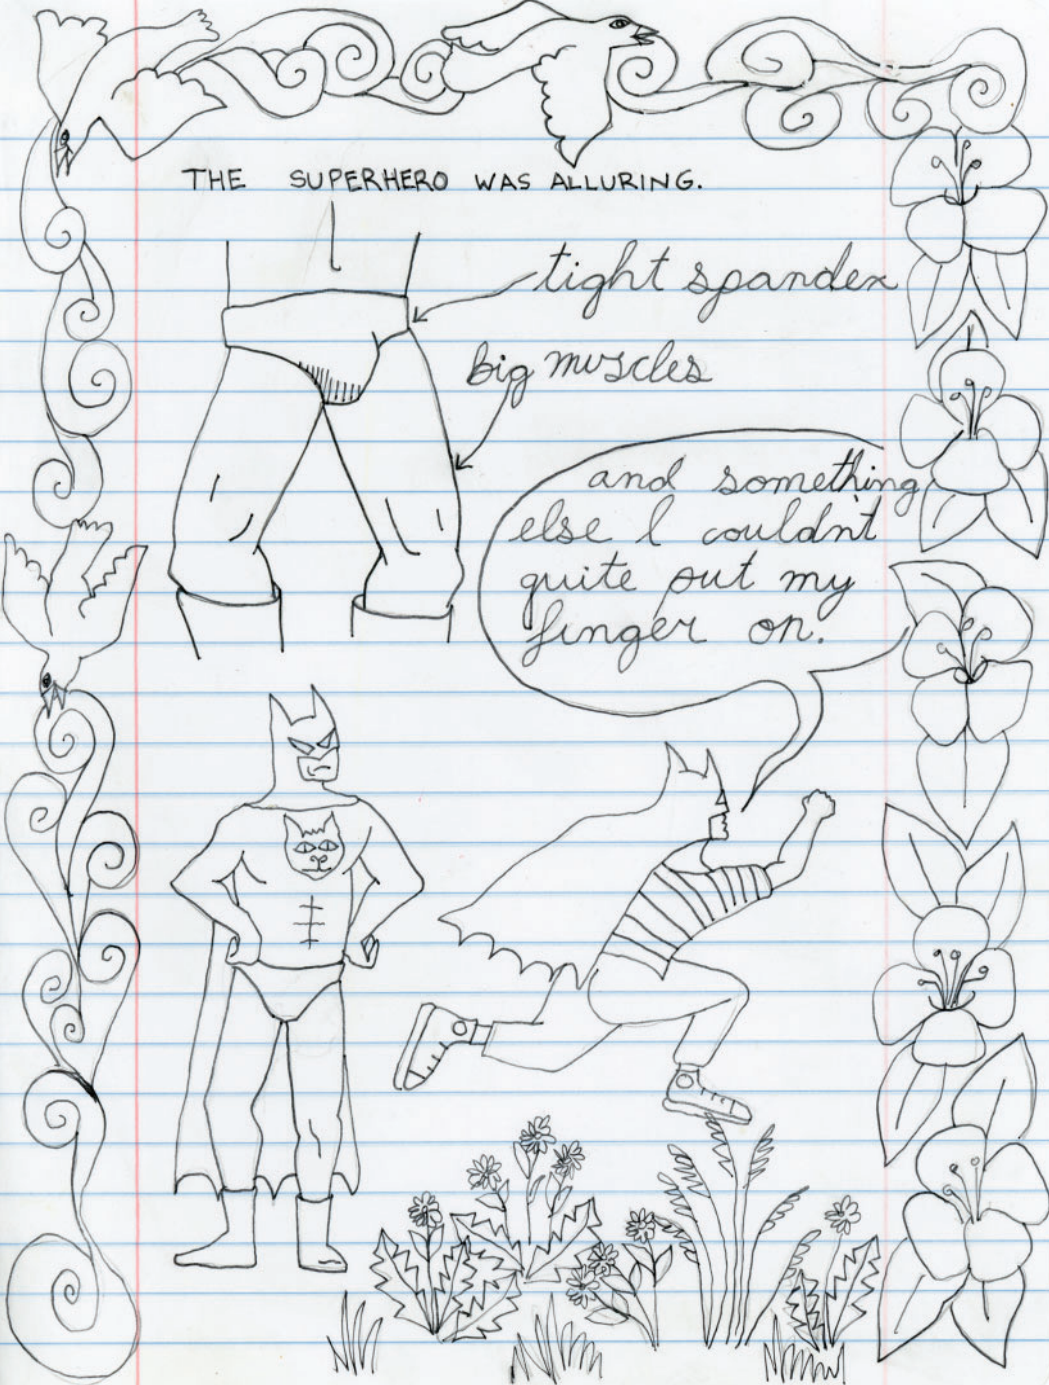 THE SUPERHERO WAS ALLURING.
tight spandex
big muscles
and something
else I couldnt
quite put my
finger on.